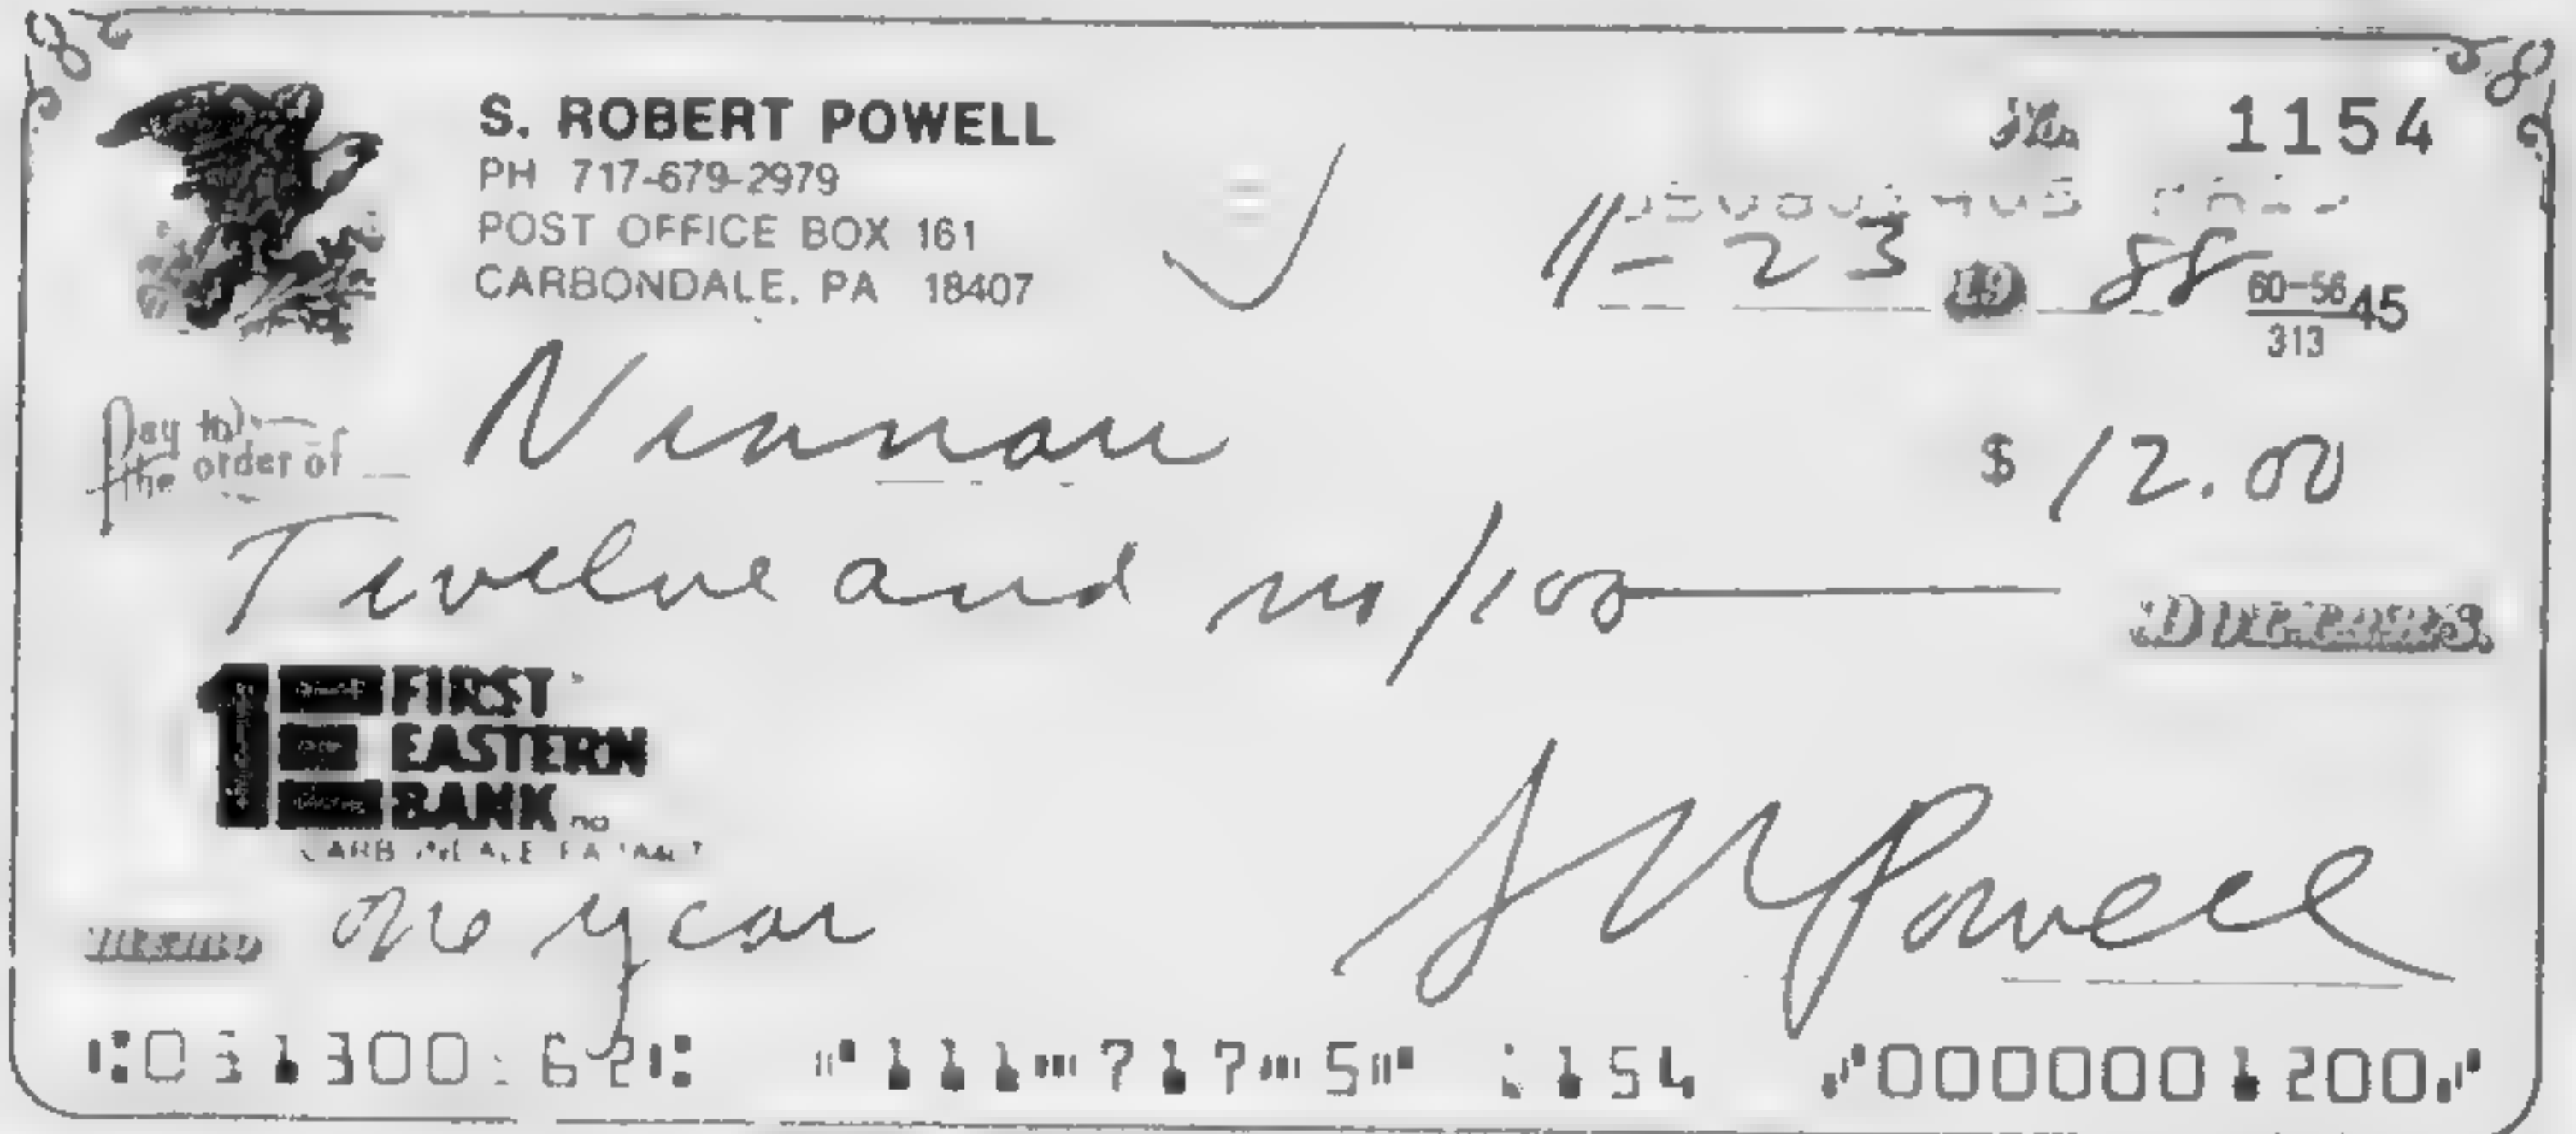 S. ROBERT POWELL
PH 717-679-2979
POST OFFICE BOX 161
CARBONDALE, PA 18407
1154
11-23 19 88
60-56 45
313
Pay to
the order of
$ 12.00
Twelve and no/100
DOLLARS
1E FIRST
EASTERN
BANK na
Memo one year
S R Powell
111 717 5 1154 0000001200